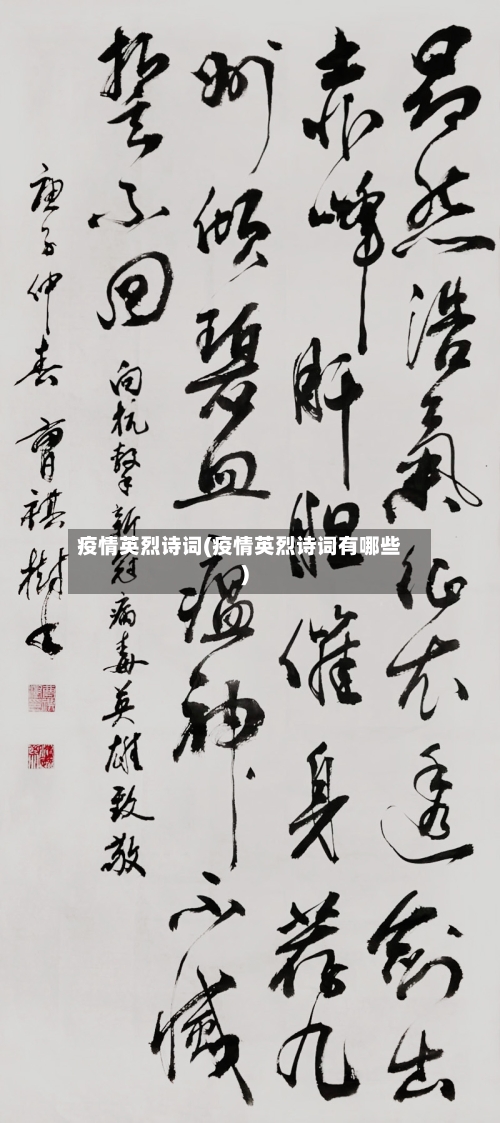 昂然浩氣征衣透劍出
赤峰肝胆催身荐九
州傾碧血瘟神不滅
誓不回
向抗擊新冠病毒英雄致敬
庚子仲春 曹祺樹书
疫情英烈诗词(疫情英烈诗词有哪些
)